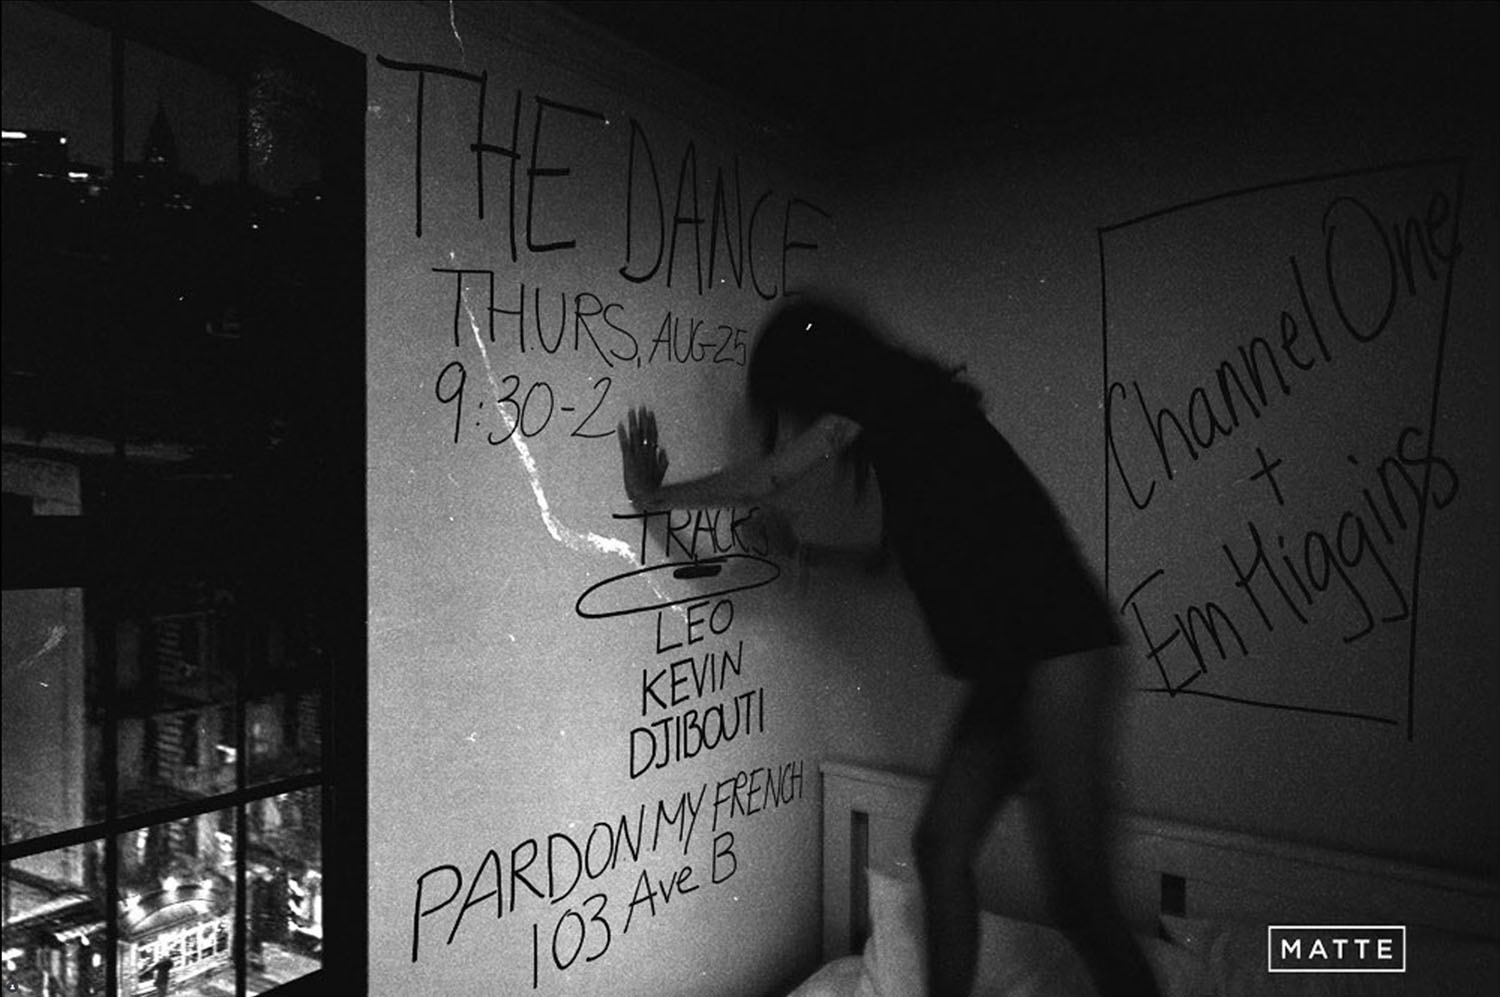 THE DANCE
THURS, AUG-25
9:30-2
TRACKS
LEO
KEVIN
DJIBOUTI
PARDON MY FRENCH
103 Ave B
Channel One
+
Em Higgins
MATTE